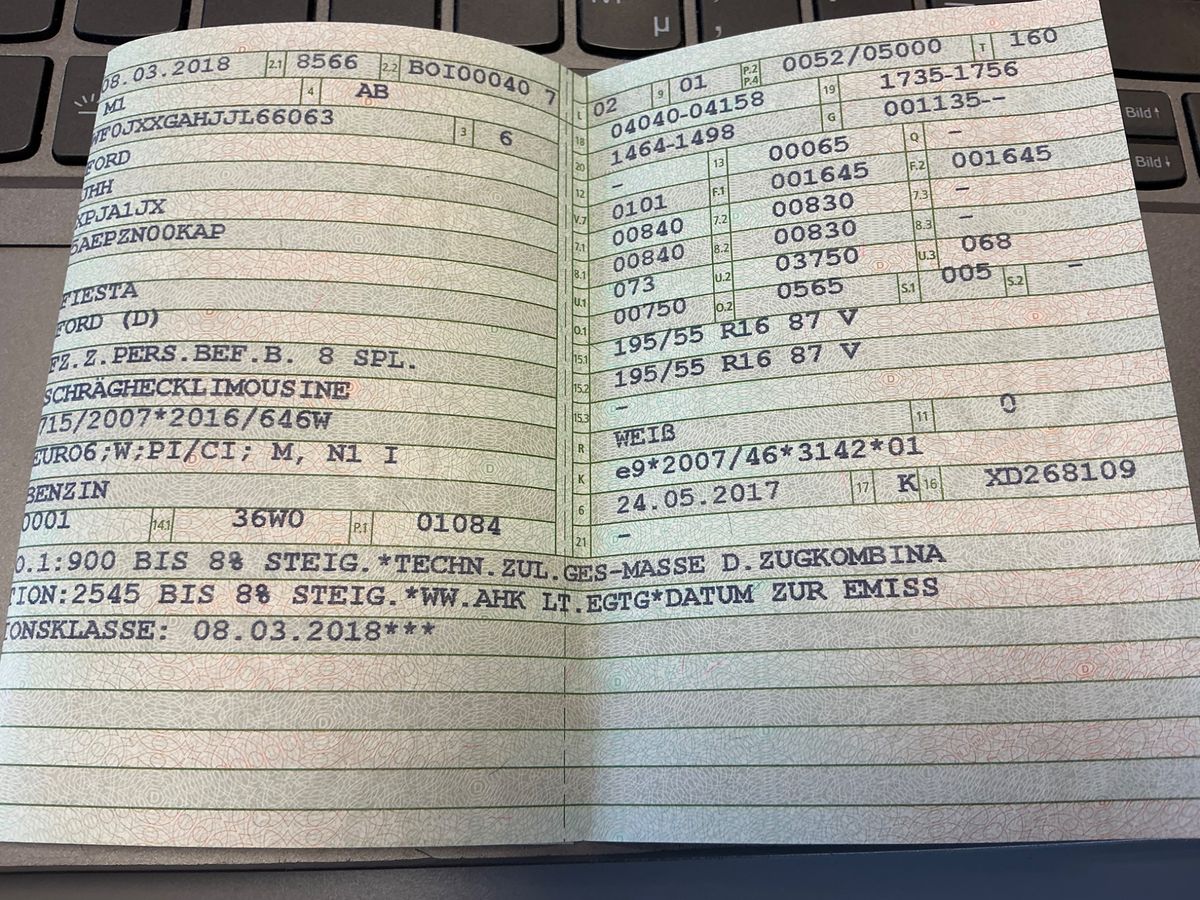 08.03.2018 2.1 8566 2.2 BOI00040 7
M1 4 AB
WF0JXXGAHJJL66063 3 6
FORD
JHH
XPJA1JX
5AEPZN00KAP
FIESTA
FORD (D)
FZ.Z.PERS.BEF.B. 8 SPL.
SCHRÄGHECKLIMOUSINE
715/2007*2016/646W
EURO6;W;PI/CI; M, N1 I
BENZIN
0001 14.1 36W0 P.1 01084
L 02 9 01 P.2 P.4 0052/05000 T 160
18 04040-04158 19 1735-1756
20 1464-1498 G 001135--
12 - 13 00065 Q -
V.7 0101 F.1 001645 F.2 001645
7.1 00840 7.2 00830 7.3 -
8.1 00840 8.2 00830 8.3 -
U.1 073 U.2 03750 U.3 068
O.1 00750 O.2 0565 S.1 005 S.2 -
15.1 195/55 R16 87 V
15.2 195/55 R16 87 V
15.3 -
R WEIß 11 0
K e9*2007/46*3142*01
6 24.05.2017 17 K 16 XD268109
21 -
O.1:900 BIS 8% STEIG.*TECHN.ZUL.GES-MASSE D.ZUGKOMBINA
TION:2545 BIS 8% STEIG.*WW.AHK LT.EGTG*DATUM ZUR EMISS
IONSKLASSE: 08.03.2018***
µ
;
,
Bild↑
Bild↓